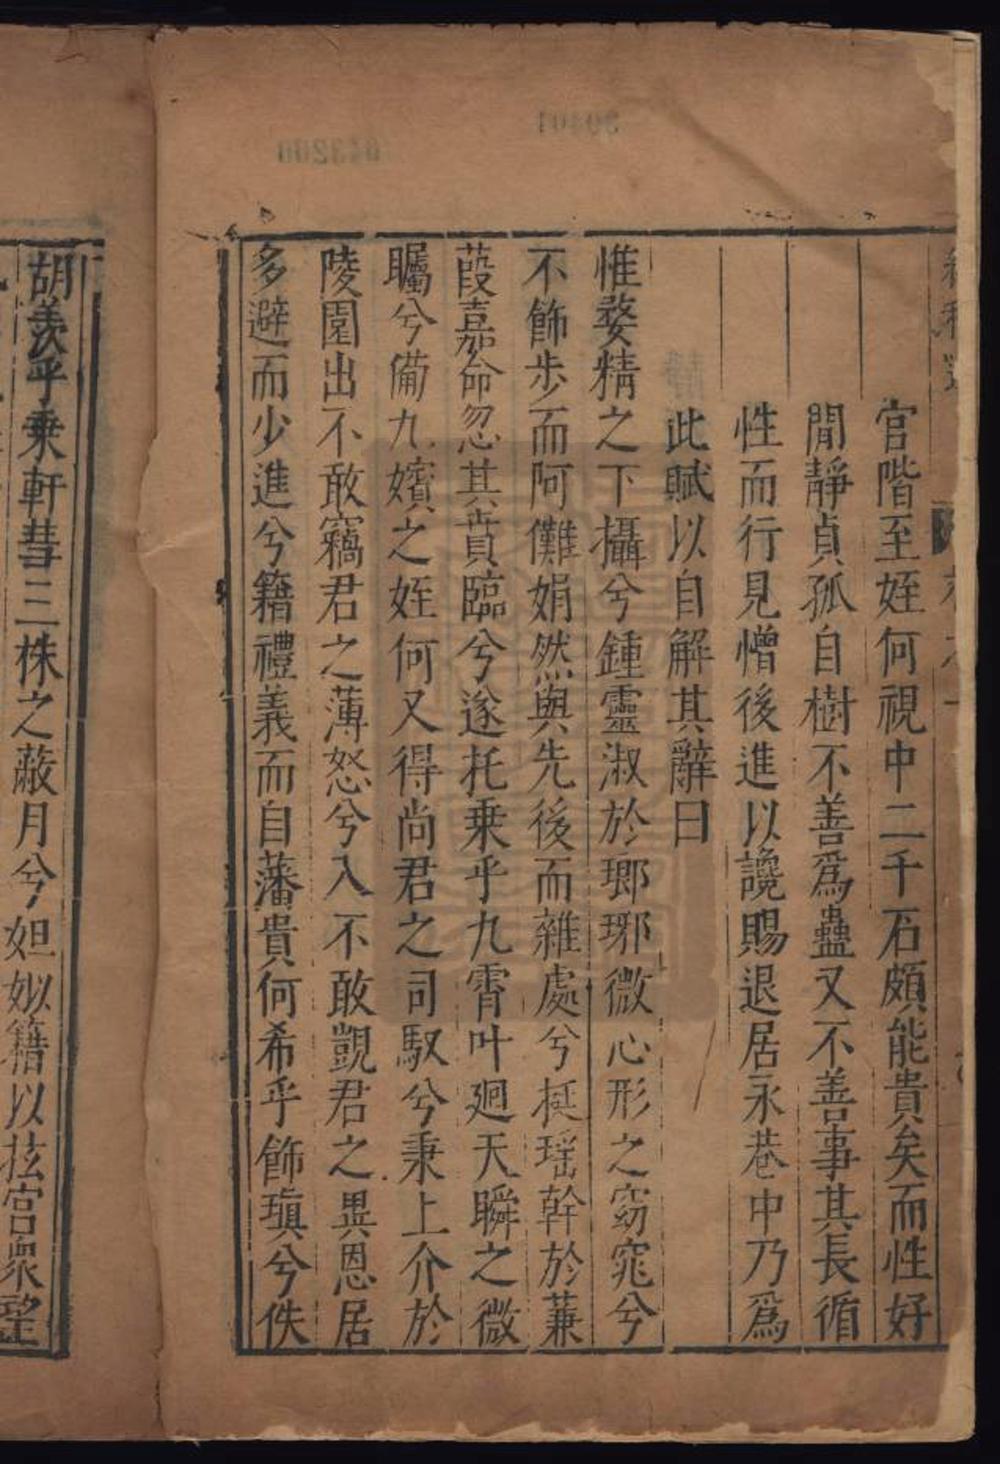 官階至姪何視中二千石頗能貴矣而性好
閒靜貞孤自樹不善爲蠱又不善事其長循
性而行見憎後進以讒賜退居永巷中乃爲
此賦以自解其辭曰
惟婺精之下攝兮鍾靈淑於瑯琊微心形之窈窕兮
不飾步而阿儺娟然與先後而雜處兮梃瑶幹於蒹
葭嘉命忽其賁臨兮遂托乗乎九霄叶廻天瞬之微
矚兮備九嬪之姪何又得尚君之司馭兮秉上介於
陵園出不敢竊君之薄怒兮入不敢覬君之異恩居
多避而少進兮籍禮義而自藩貴何希乎飾瑱兮佚
胡羨乎乗軒彗三株之蔽月兮妲妙籍以抎宮衆望